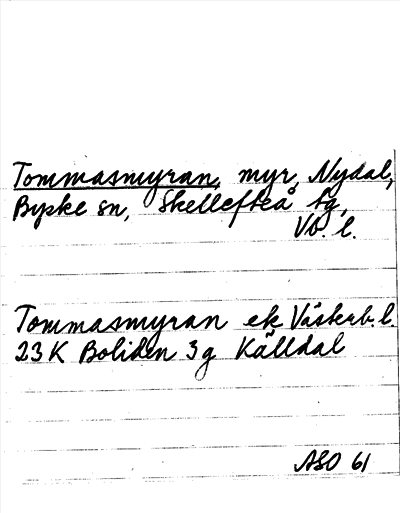 Tommasmyran, myr, Nydal,
Byske sn, Skellefteå tg,
Vb. l.
Tommasmyran ek Västerb. l.
23 K Boliden 3 g Källdal
ASO 61